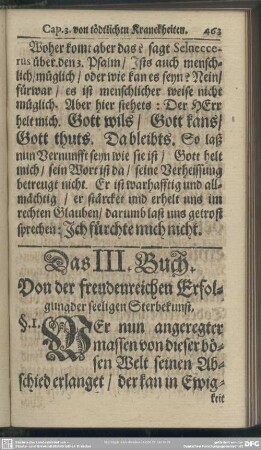 Cap. 3. von tödtlichen Kranckheiten. 463
Woher kom̃t aber das? sagt Selnecce-
rus über den 3. Psalm / Ists auch mensch-
lich / müglich / oder wie kan es seyn? Nein /
fürwar / es ist menschlicher weise nicht
müglich. Aber hier stehets: Der HErr
helt mich. Gott wils / Gott kans /
Gott thuts. Da bleibts. So laß
nun Vernunfft seyn wie sie ist / Gott helt
mich / sein Wort ist da / seine Verheissung
betreugt nicht. Er ist warhafftig und all-
mächtig / er stärcket und erhelt uns im
rechten Glauben / darumb last uns getrost
sprechen: Ich fürchte mich nicht.
Das III. Buch.
Von der freudenreichen Erfol-
gung der seeligen Sterbekunst.
§. 1. WEr nun angeregter
massen von dieser bö-
sen Welt seinen Ab-
schied erlanget / der kan in Ewig-
keit